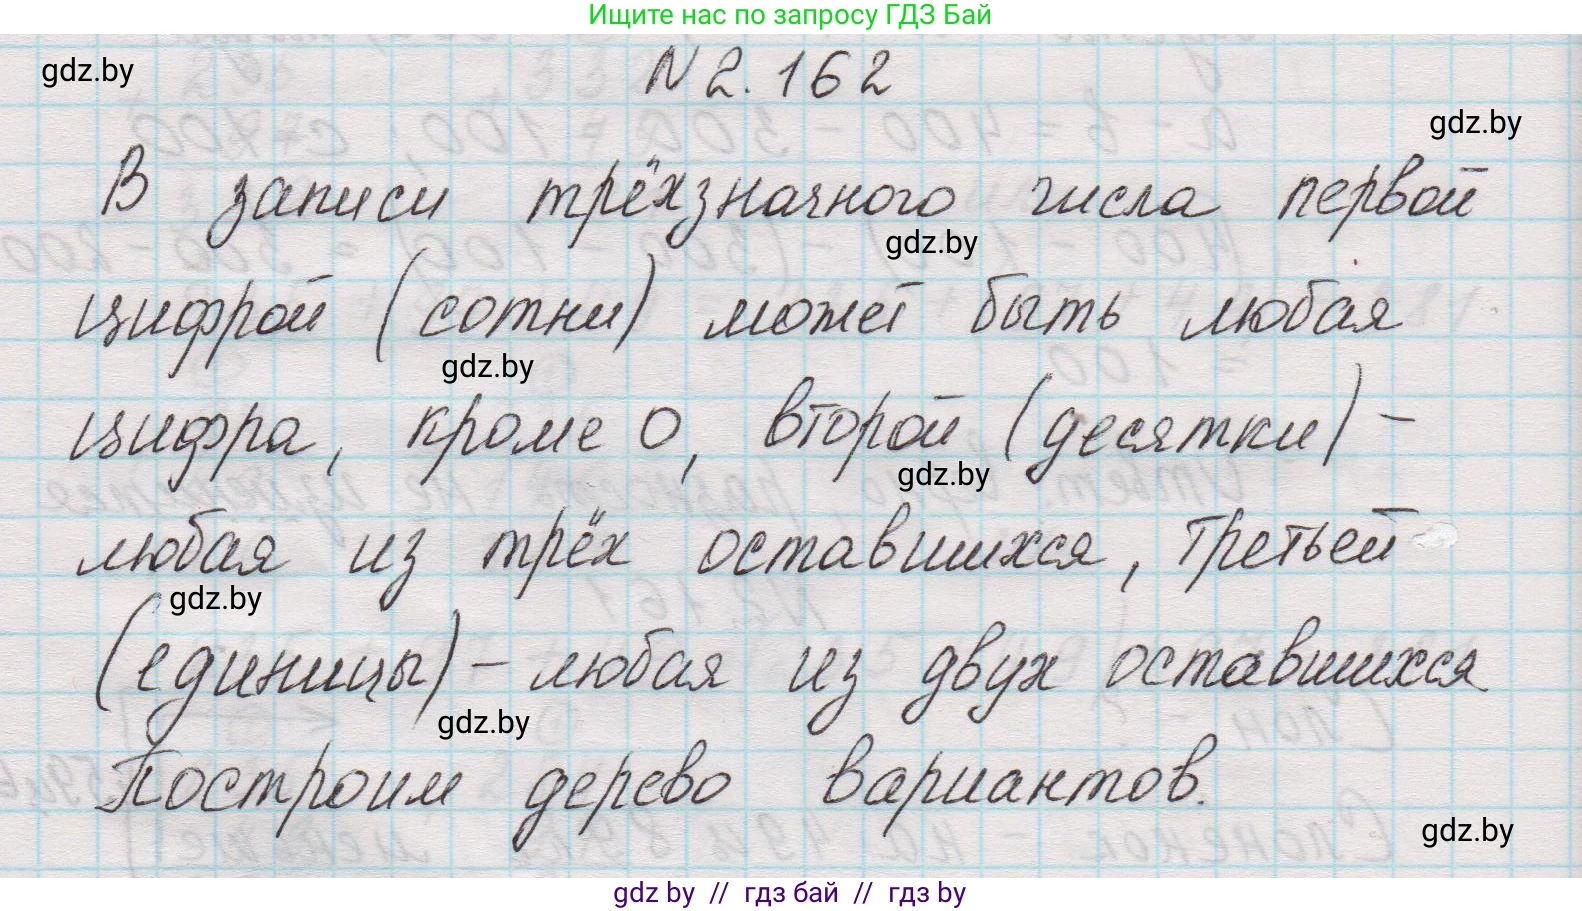 Ищите нас по запросу ГДЗ Бай
gdz.by
N 2.162
gdz.by
В записи трёхзначного числа первой
gdz.by
цифрой (сотни) может быть любая
gdz.by
цифра, кроме 0, второй (десятки) –
gdz.by
любая из трёх оставшихся, третьей
gdz.by
(единицы) – любая из двух оставшихся
gdz.by
Построим дерево вариантов.
gdz.by
gdz by // гдз бай // гдз by